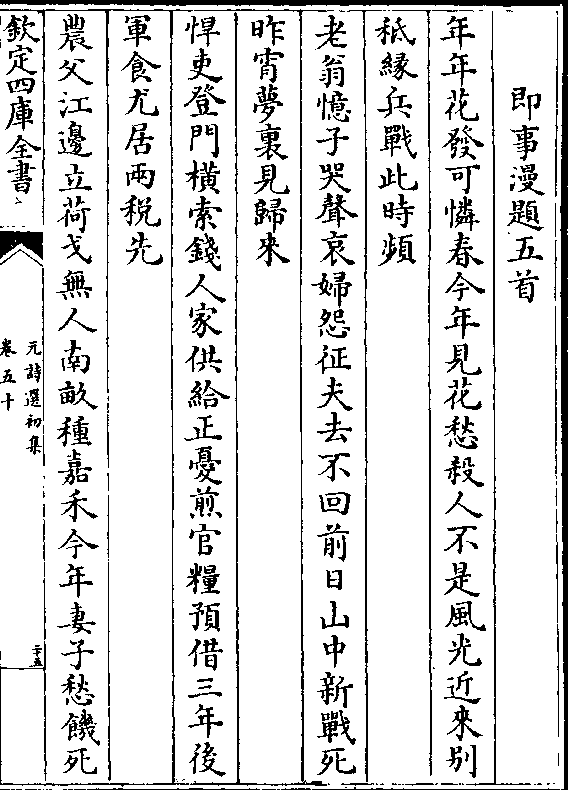 即事漫題五首
年年花發可憐春今年見花愁殺人不是風光近來别
秪緣兵戰此時頻
老翁憶子哭聲哀婦怨征夫去不回前日山中新戰死
昨宵夢裏見歸來
悍吏登門横索錢人家供給正憂煎官糧預借三年後
軍食尤居兩税先
農父江邊立荷戈無人南畝種嘉禾今年妻子愁饑死
欽定四庫全書
元詩選初集
卷五十
二十五